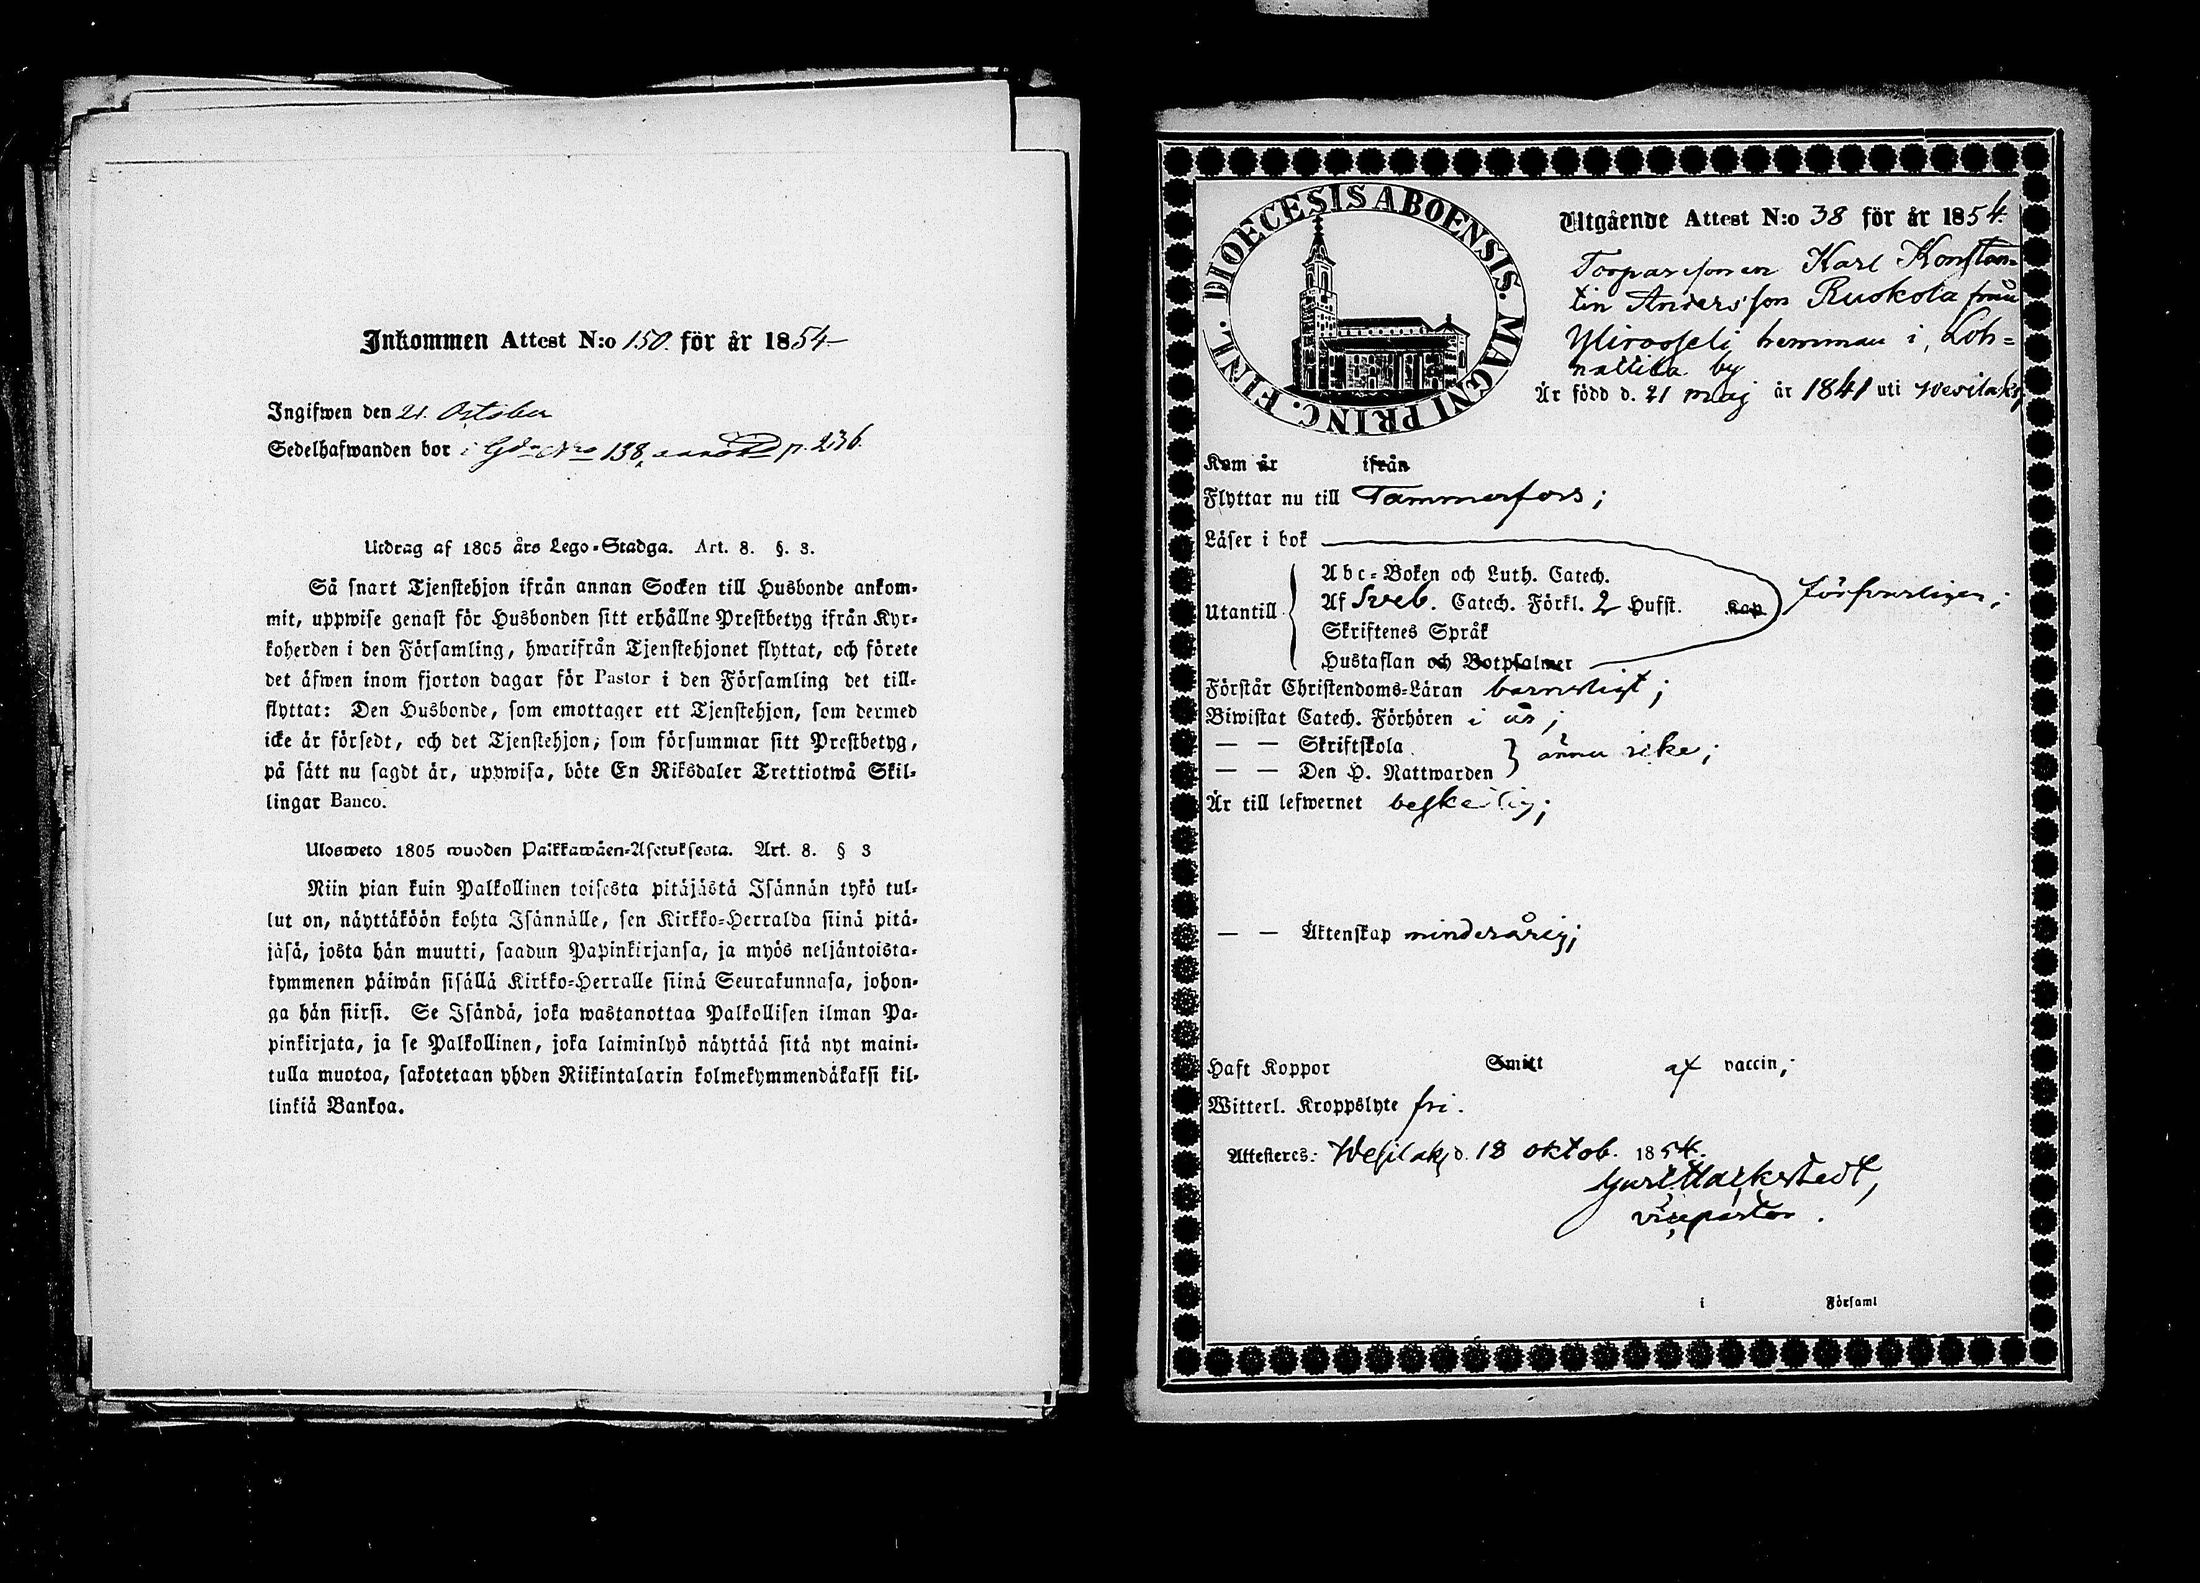 Inkommen Attest N:o 150. för år 1854
Ingifwen den 21. October
Sedelhafwanden bor i Gdn Nro 138, p. 236.
Utdrag af 1805 års Lego-Stadga. Art. 8. §. 3.
Så snart Tjenstehjon ifrån annan Socken till Husbonde ankom-
mit, uppwise genast för Husbonden sitt erhållne Prestbetyg ifrån Kyr-
koherden i den Församling, hwarifrån Tjenstehjonet flyttat, och förete
det äfwen inom fjorton dagar för Pastor i den Församling det till-
flyttat: Den Husbonde, som emottager ett Tjenstehjon, som dermed
icke är försedt, och det Tjenstehjon, som försummar sitt Prestbetyg,
på sätt nu sagdt är, uppwisa, böte En Riksdaler Trettiotwå Skil-
lingar Banco.
Ulosweto 1805 wuoden Palkkawäen-Asetuksesta. Art. 8. § 3
Niin pian kuin Palkollinen toisesta pitäjästä Isännän tykö tul-
lut on, näyttäköön kohta Isännälle, sen Kirkko-Herralda siinä pitä-
jäsä, josta hän muutti, saadun Papinkirjansa, ja myös neljäntoista-
kymmenen päiwän sisällä Kirkko-Herralle siinä Seurakunnasa, johon-
ga hän siirsi. Se Isändä, joka wastanottaa Palkollisen ilman Pa-
pinkirjata, ja se Palkollinen, joka laiminlyö näyttää sitä nyt maini-
tulla muotoa, sakotetaan yhden Riikintalarin kolmekymmendäkaksi kil-
linkiä Bankoa.
DIOECESIS ABOENSIS. MAGNI PRINC. FINL.
Utgående Attest N:o 38 för år 1854.
Torparesonen Karl Konstan-
tin Andersson Ruskola från
Yliroosseli hemman i Loh-
nattila by
Är född d. 21 maj år 1841 uti Wesilaks,
Kom år ifrån
Flyttar nu till Tammerfors;
Läser i bok
Abc-Boken och Luth. Catech.
Utantill Af Sveb. Catech. Förkl. 2 Hufst. Kap försvarligen;
Skriftenes Språk
Hustaflan och Botpsalmer
Förstår Christendoms-Läran barnsligt;
Biwistat Catech. Förhören i år;
— — Skriftskola
— — Den H. Nattwarden ännu icke;
Är till lefwernet beskedlig;
— — Äktenskap minderårig;
Haft Koppor Smitt af vaccin;
Witterl. Kroppslyte fri.
Attesteres: Wesilaks d. 18 oktob. 1854.
Gust. Markstedt,
vicepastor.
i Församl